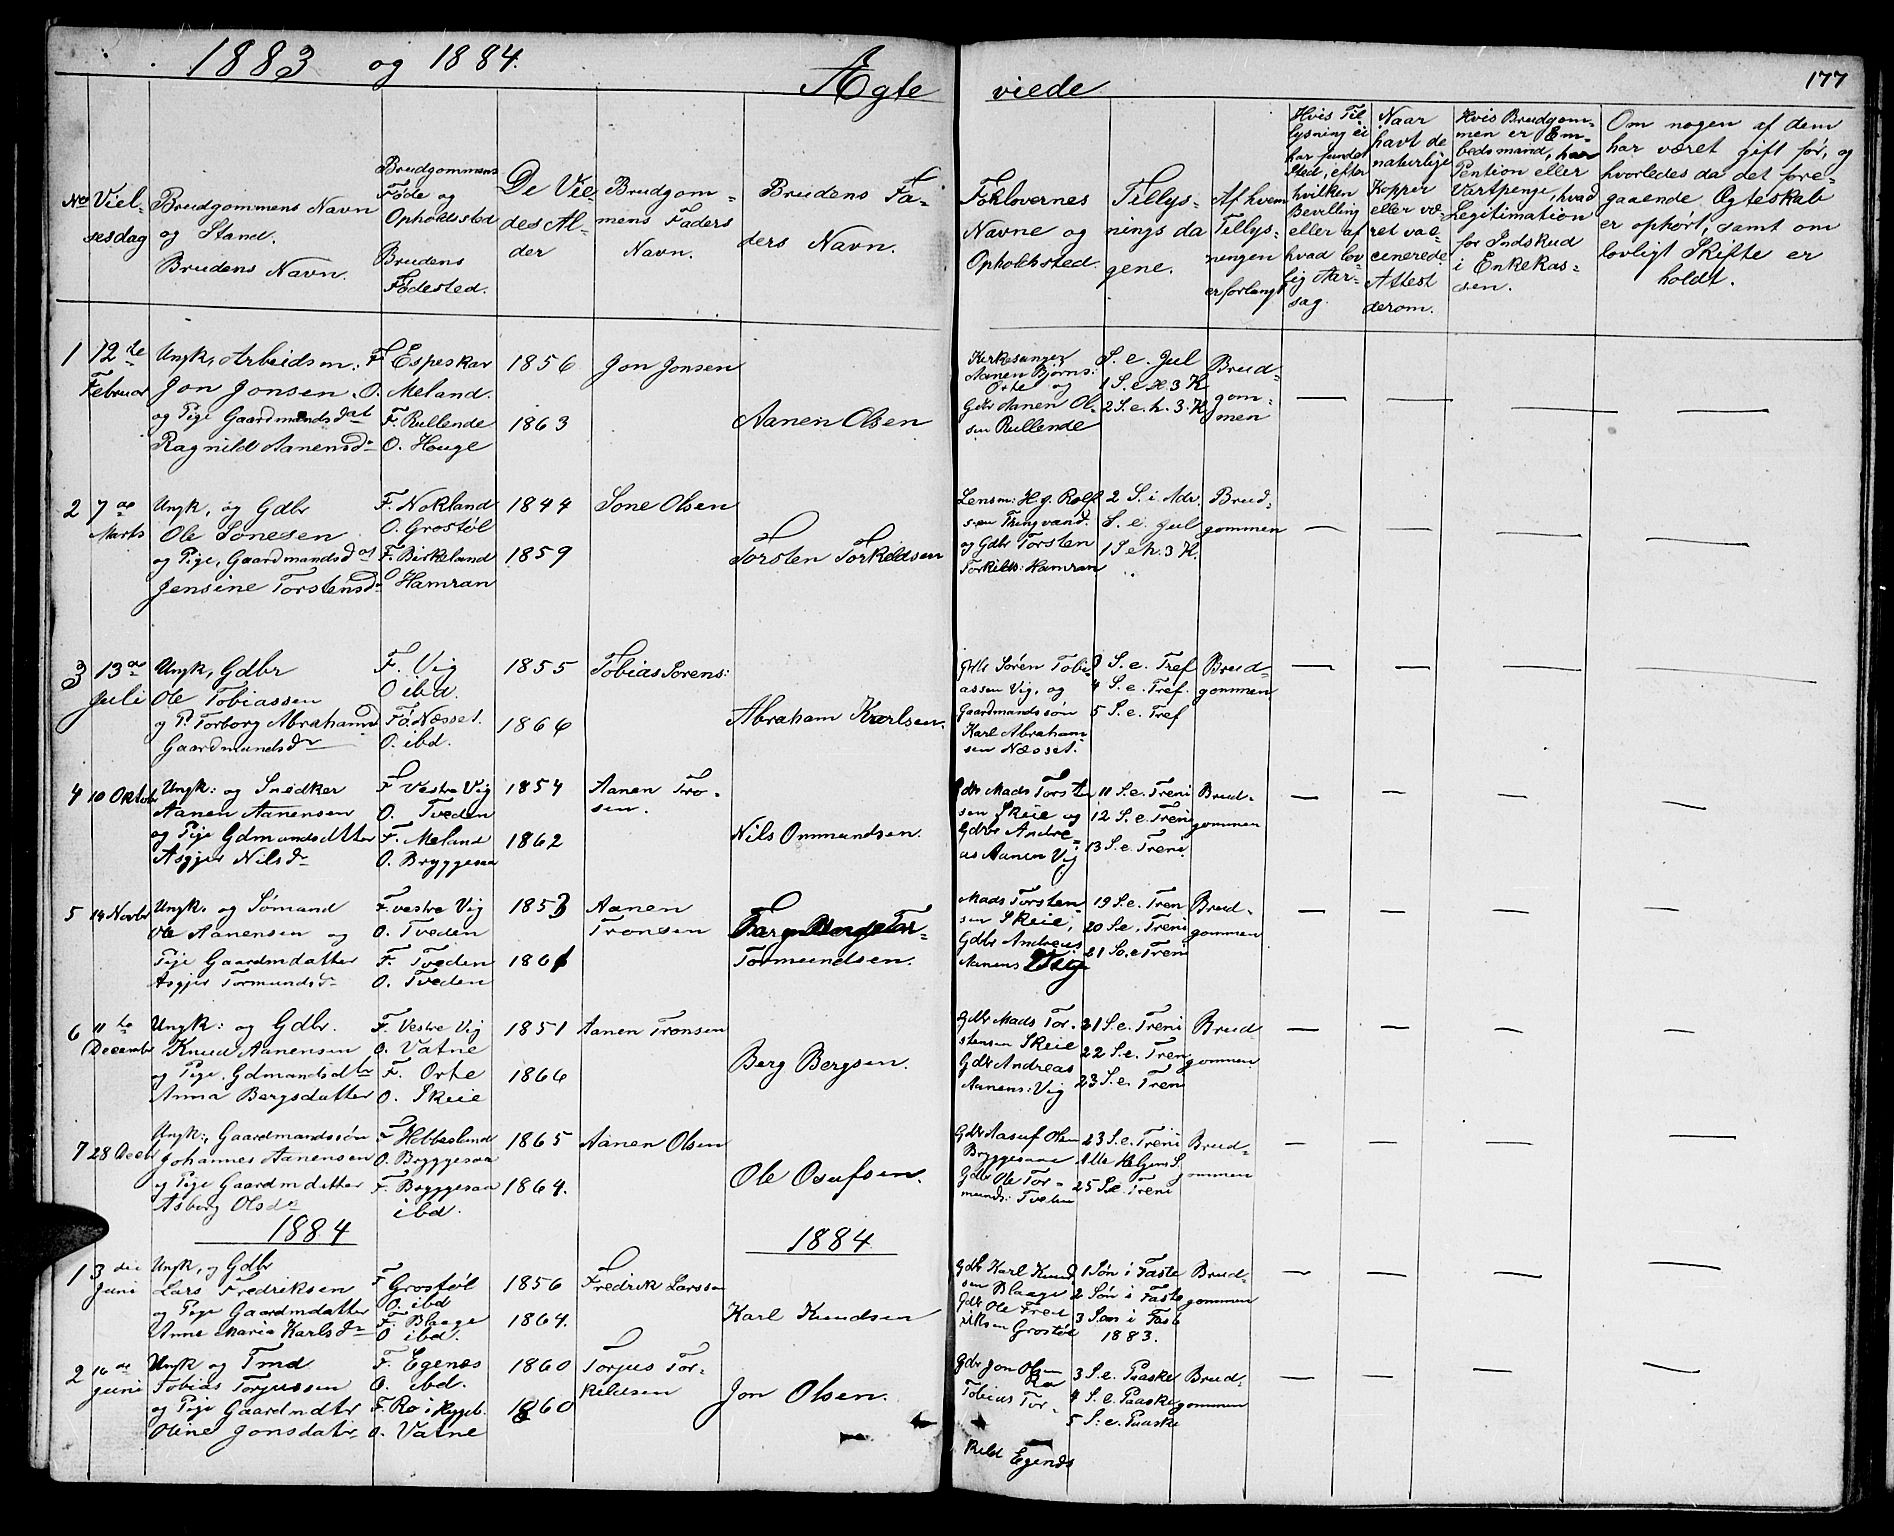 1883 og 1884.
Ægte viede
177
No
Viel-
sesdag
Brudgommens Navn
og Stand.
Brudens Navn.
Brudgommens
Føde og
Opholdssted
Brudens
Fødested.
De Vie-
des Al-
der
Brudgom-
mens Faders
Navn.
Brudens Fa-
ders Navn.
Forlovernes
Navne og
Opholdssted.
Tillys-
nings da
gene.
Af hvem
Tillys-
ningen
er forlangt
Hvis Til
lysning ei
har fundet
Sted, efter
hvilken
Bevilling
eller af
hvad lov-
lig Aar-
sag.
Naar
havt de
naturlige
Kopper
eller væ-
ret vac-
cinerede
Attest
derom.
Hvis Brudgom-
men er Em-
bedsmand, har
Pention eller
Vartpenge, hvad
Legitimation
for Indskud
i Enkekas-
sen.
Om nogen af dem
har været gift før, og
hvorledes da det fore-
gaaende Ægteskab
er ophørt, samt om
lovligt Skifte er
holdt.
1
12te
Februar
Ungk, Arbeidsm:
Jon Jonsen.
og Pige Gaardmandsdat
Ragnild Aanensd
F Espeskar
O. Meland.
F. Rullende
O. Houge
1856
1863
Jon Jonsen
Aanen Olsen
Kirkesanger
Aanen Bjørns:
Orte og
Gdr Aanen Ol-
sen Rullende
S. e. Jul
1 S. e. H. 3 K
2 S. e. h. 3. K
Brud-
gom-
men
2
7de
Marts
Ungk, og Gdbr
Ole Sonesen
og Pige, Gaardmandsdat
Jensine Torstensd
F. Nokland
O. Grostøl
F. Birkeland
O Hamran
1844
1859
Sone Olsen
Torsten Torkildsen
Lensm: H. g. Rolf
sen Tringvand.
og Gdbr Torsten
Torkilds: Hamran
2 S. i Adv.
S. e. Jul
1 S e h. 3 K.
Brud-
gommen
3
13de
Juli
Ungk, Gdbr
Ole Tobiassen
og P. Torborg Abrahamsd
Gaardmandsdr
F. Vig
O ibd.
Fø. Næsset.
O. ibd.
1855
1866
Tobias Sorens:
Abraham Karlsen.
Gdbr Sören Tobi-
assen Vig, og
Gaardmandssön
Karl Abraham
sen Næsset.
3 S. e. Tref
4 S. e. Tref.
5 S. e. Tref
Brud-
gommen
4
10 Oktobr
Ungk: og Snedker
Aanen Aanensen
og Pige Gdmandsdtter
Asgjer Nilsdr
F Vestre Vig
O. Tveden
F. Meland
O. Bryggesaa
1854
1862
Aanen Tro-
sen.
Nils Ommundsen.
Gdr Mads Torsten
sen Skeie og
Gdbr Andre-
as Aanen Vig
11 S. e. Treni
12 S. e. Treni
13 S. e. Treni.
Brud-
gommen
5
14 Novbr
Ungk. og Sömand
Ole Aanensen og
Pige Gaardmdatter
Asgjer Tormundsdr
F. vestre Vig
O. Tveden
F. Tveden
O. Tveden
1853
1861
Aanen
Tronsen
Tormundsen.
Mads Torsten-
sen Skeie,
Gdbr Andreas
Aanens Vig
19 S. e. Tren
20 S. e. Treni
21 So. e Treni
Brud-
gommen
6
11te
Decembr
Ungk: og Gdbr.
Knud Aanensen
og Pige. Gdmandsdtr
Anna Bergsdatter
F. Vestre Vig
O. Vatne
F. Orte
O. Skeie
1851
1866
Aanen Tronsen
Berg Bergsen.
Gdbr Mads Tor-
stensen Skeie
Gdbr Andreas
Aanens: Vig
21 S. e. Treni
22 S. e. Tren
23 S. e. Treni
Brud-
gommen
7
28 Decbr
Ungk:, Gaardmandssön
Johannes Aanensen
og Pige Gaardmdatter
Asborg Olsdr
F Hebbeland
O. Bryggesaa
F. Bryggesaa
ibd.
1865
1864.
Aanen Olsen
Ole Osufsen.
Gdbr Aasuf Olsen
Bryggesaa
Gdbr Ole Tor-
munds: Tveden
23 S. e. Treni
Alle Helgens S.
25 S. e. Treni
Brud-
gommen
1884
1884
1
3die
Juni
Ungk, og Gdbr
Lars Fredriksen
og Pige Gaardmdatter
Anne Maria Karlsdr
F Grostøl
O. ibd
F. Blaage
O ibd.
1856
1864.
Fredrik Larssen
Karl Knudsen
Gdbr Karl Knud
sen Blaage
Gdbr Ole Fred
riksen Grostøl
1 Søn i Faste
2 Søn i Faste
3 Søn i Fast
1883.
Brud-
gommen
2
16de
Juni
Ungk og Tmd
Tobias Torjussen
og Pige Gaardmdtr
Oline Jonsdatr
F. Egenæs
O. ibd.
F. Ro i Hægeb.
O. Vatne
1860
1860
Torjus Tor-
kildsen
Jon Olsen.
Gdbr Jon Olsen
Ro
Tobias Tor-
kild Egenæs
3 S. e. Paaske
4 S. e. Paaske
5 S. e. Paaske
Brud-
gommen